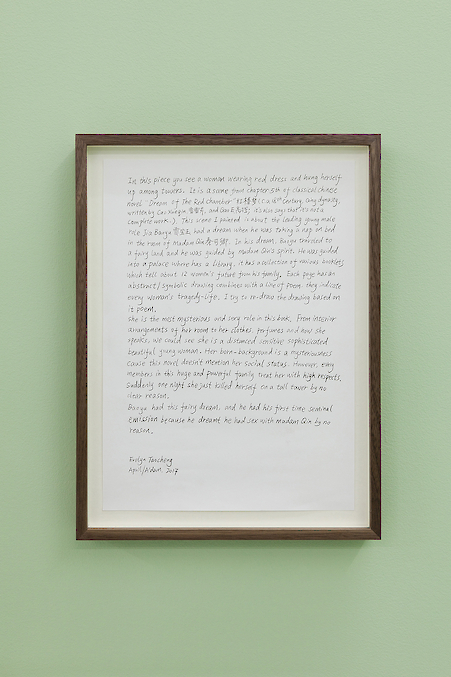 In this piece you see a woman wearing red dress and hang herself
up among towers. It is a scene from chapter 5th of classical chinese
novel "Dream of The Red Chamber" 红楼梦 (C.a. 18th century, Qing dynasty,
written by Cao Xueqin 曹雪芹, and Gao E 高鹗; it's also says that it's not a
complete work.). This scene I painted is about the leading young male
role Jia Baoyu 贾宝玉 had a dream when he was taking a nap on bed
in the room of Madam Qin 秦可卿. In his dream, Baoyu traveled to
a fairy land and he was guided by madam Qin's spirit. He was guided
into a palace where has a library. it has a collection of various booklets
which tell about 12 women's future from his family. Each page has an
abstract/symbolic drawing combines with a line of poem, they indicate
every woman's tragedy-life. I try to re-draw the drawing based on
it poem.
She is the most mysterious and sexy role in this book. From interior
arrangements of her room to her clothes, perfumes and how she
speaks, we could see she is a distanced sensitive sophisticated
beautiful young woman. Her born-background is a mysteriousness
cause this novel doesn't mention her social status. However, every
members in this huge and powerful family treat her with high respects.
Suddenly one night she just killed herself on a tall tower by no
clear reason.
Baoyu had this fairy dream. and he had his first time seminal
Emission because he dreamt he had sex with madam Qin by no
reason.
Evelyn Taocheng
April/A'dam. 2017